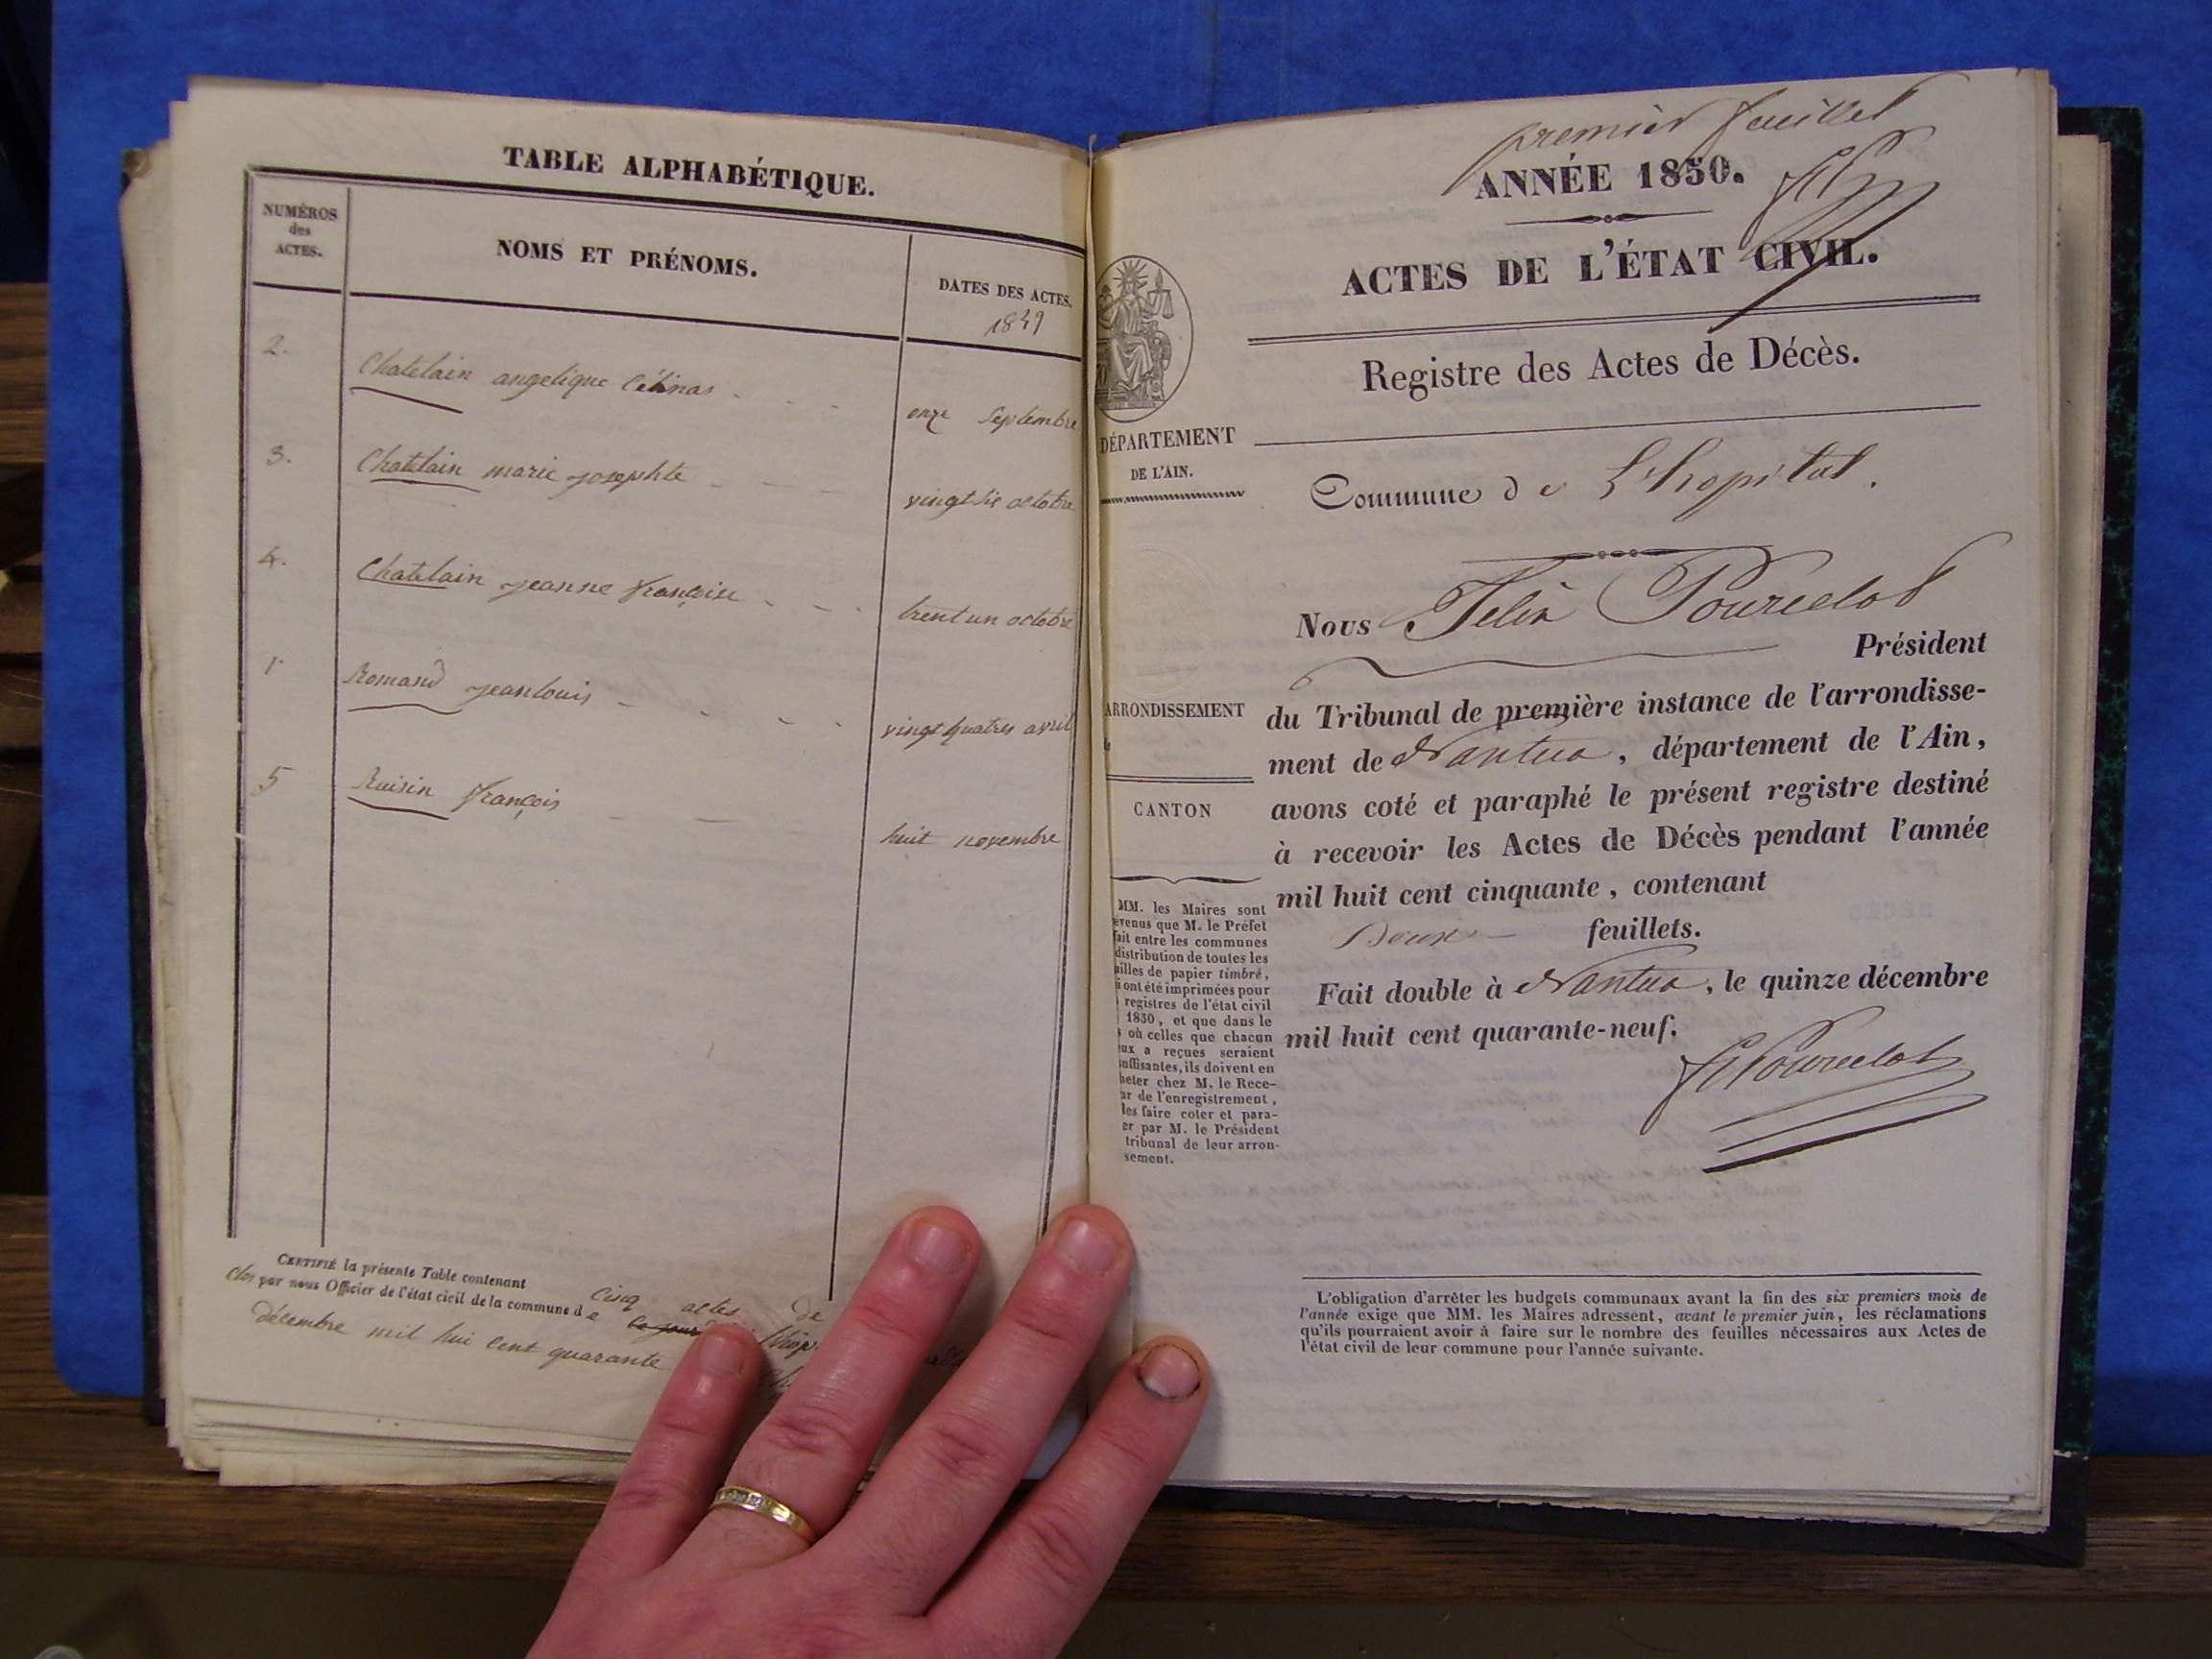 TABLE ALPHABÉTIQUE.
NUMÉROS
des
ACTES.
NOMS ET PRÉNOMS.
DATES DES ACTES.
1849
2. Chatelain angelique Célinas
onze Septembre
3. Chatelain marie josephte
vingt six octobre
4. Chatelain jeanne françoise
trent un octobre
1 Romand jeanlouis
vingt quatres avril
5 Ruisin françois
huit novembre
CERTIFIÉ la présente Table contenant cinq actes de
clos par nous Officier de l'état civil de la commune de
décembre mil hui cent quarante
premier feuillet
ANNÉE 1850.
ACTES DE L'ÉTAT CIVIL.
Registre des Actes de Décès.
DÉPARTEMENT
DE L'AIN.
Commune de L'hopital.
Nous Félix Pourcelot
Président
ARRONDISSEMENT
du Tribunal de première instance de l'arrondisse-
ment de Nantua, département de l'Ain,
CANTON
avons coté et paraphé le présent registre destiné
à recevoir les Actes de Décès pendant l'année
mil huit cent cinquante, contenant
Deux feuillets.
Fait double à Nantua, le quinze décembre
mil huit cent quarante-neuf.
Pourcelot
MM. les Maires sont
évenus que M. le Préfet
fait entre les communes
distribution de toutes les
uilles de papier timbré,
i ont été imprimées pour
registres de l'état civil
1850, et que dans le
s où celles que chacun
eux a reçues seraient
suffisantes, ils doivent en
heter chez M. le Rece-
ur de l'enregistrement,
les faire coter et para-
er par M. le Président
tribunal de leur arron-
sement.
L'obligation d'arrêter les budgets communaux avant la fin des six premiers mois de
l'année exige que MM. les Maires adressent, avant le premier juin, les réclamations
qu'ils pourraient avoir à faire sur le nombre des feuilles nécessaires aux Actes de
l'état civil de leur commune pour l'année suivante.